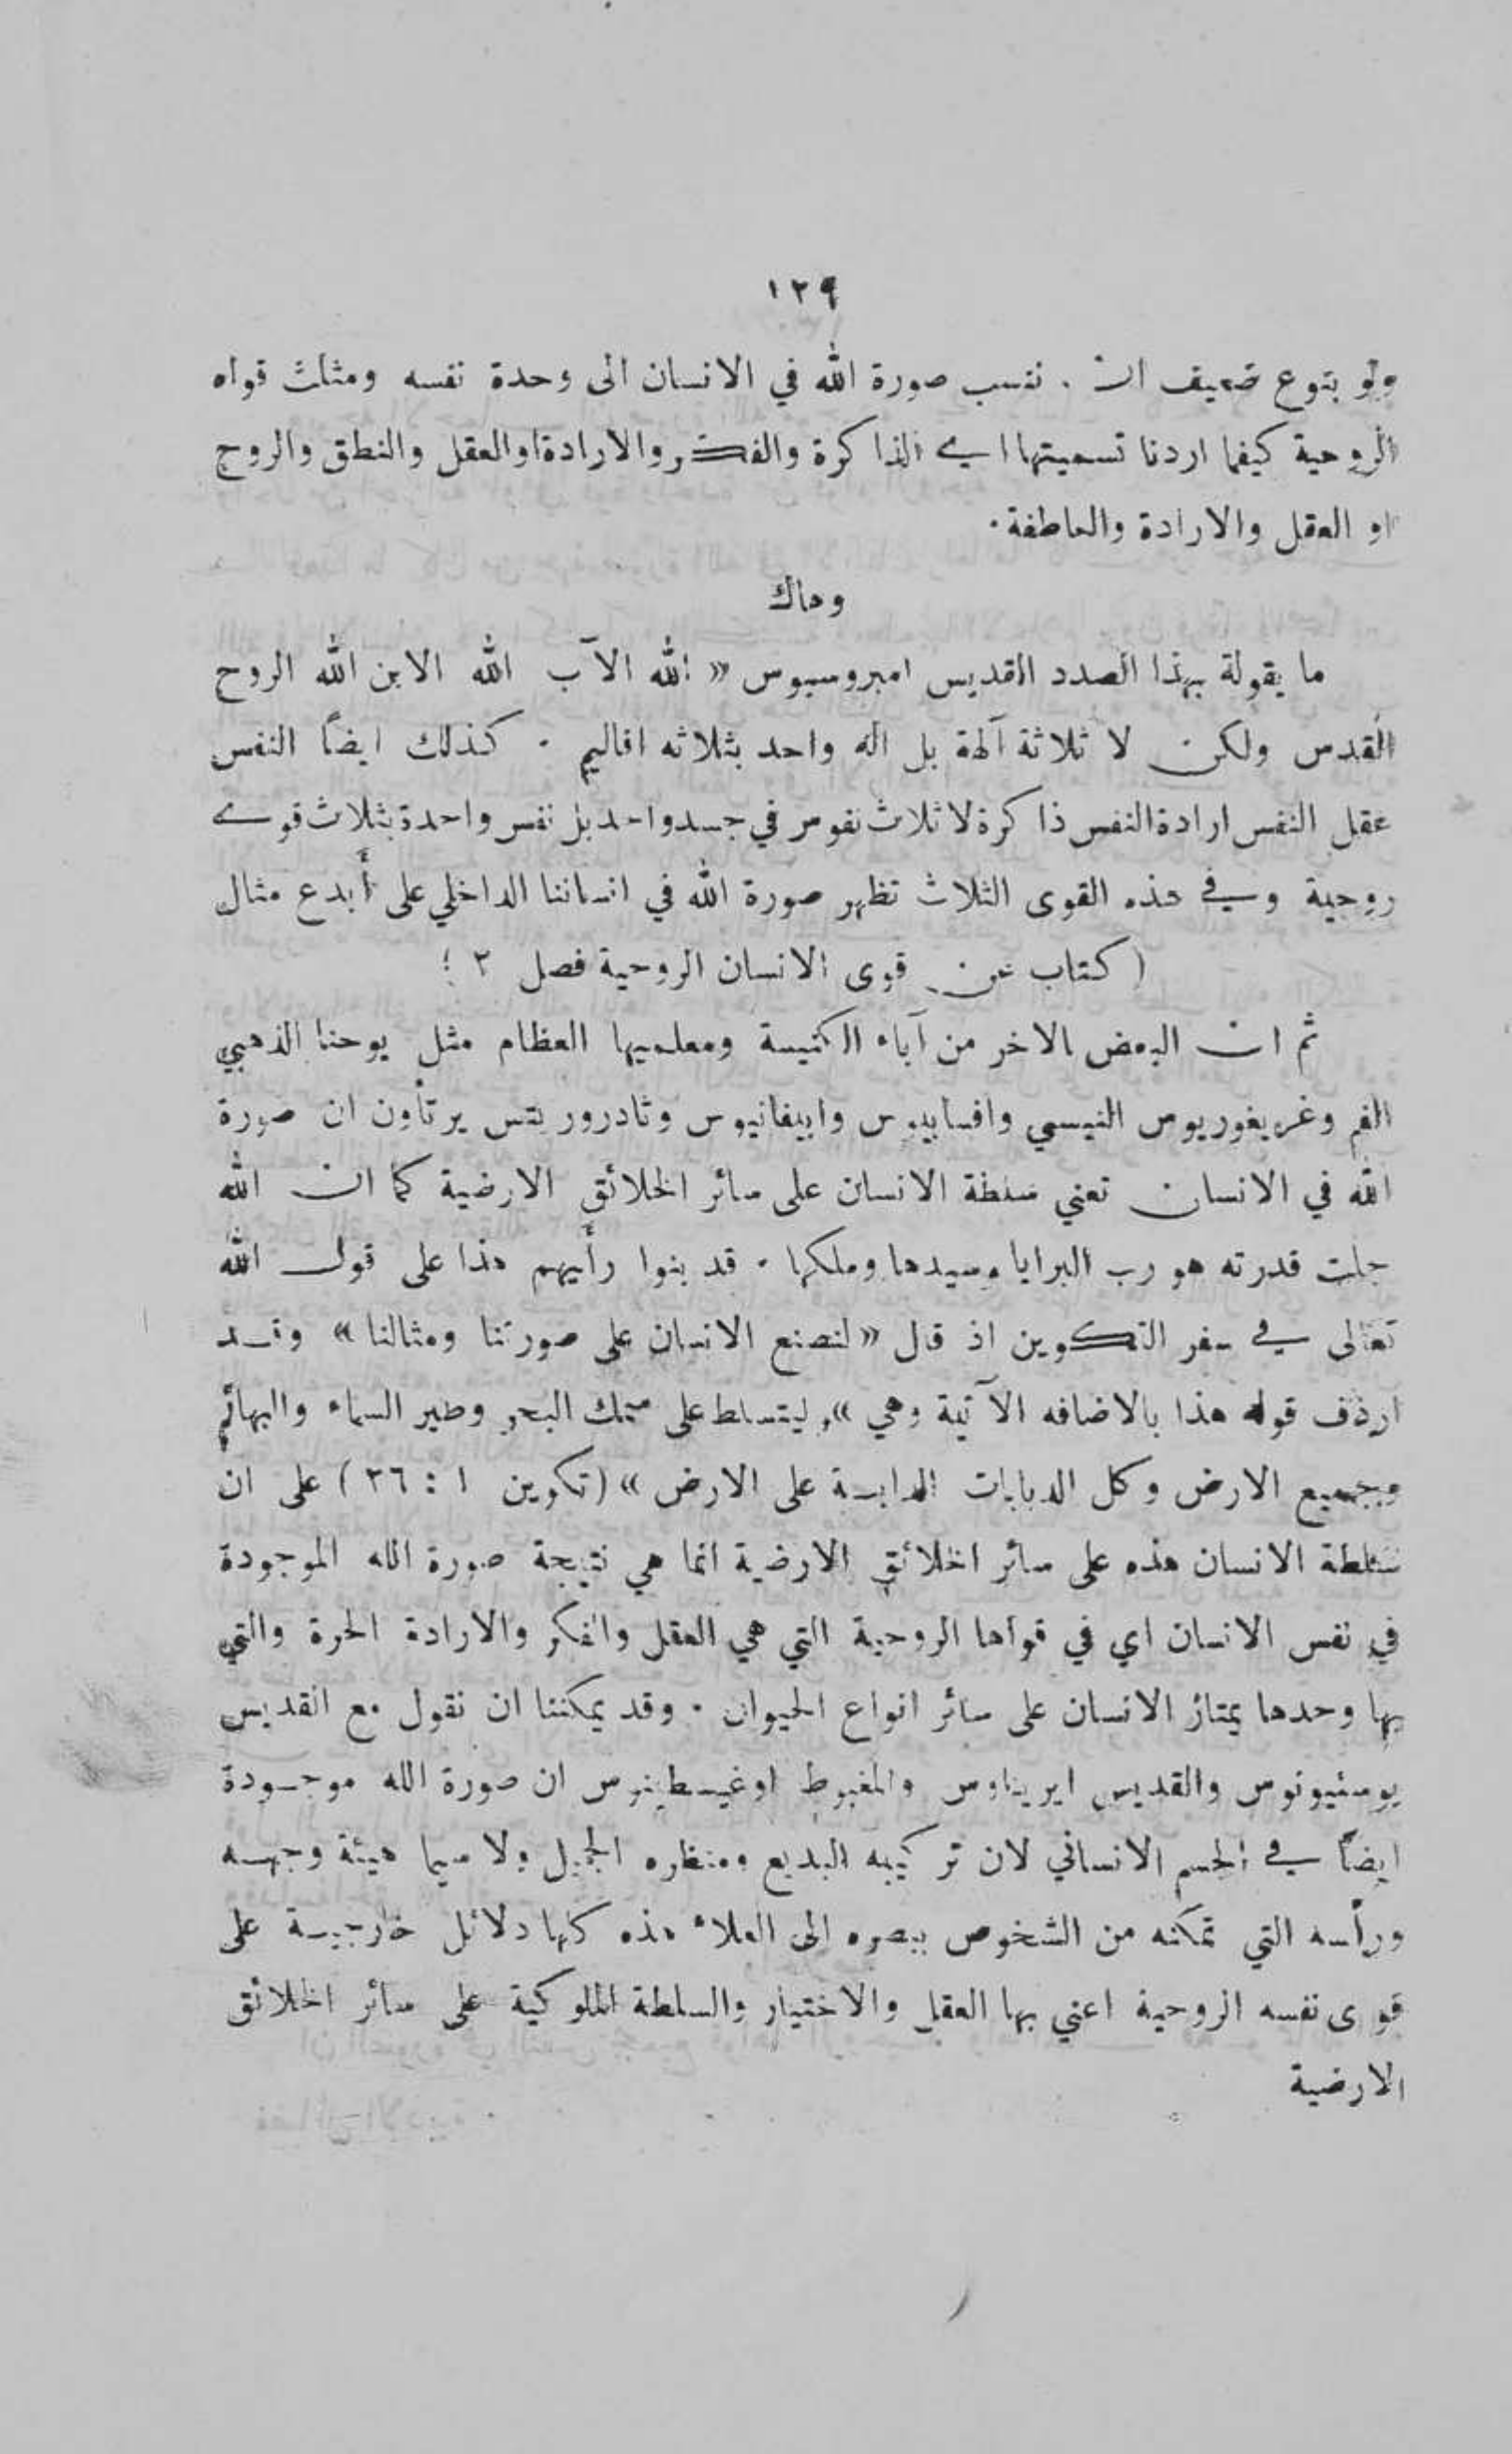 ١٢٩
ولو بنوع ضعيف ان . ننسب صورة الله في الانسان الى وحدة نفسه ومثلث قواه
الروحية كيفما اردنا تسميتها اي الذاكرة والفكر والارادة او العقل والنطق والروح
او العقل والارادة والعاطفة .
وهاك
ما يقولة بهذا الصدد القديس امبروسيوس « الله الآب الله الابن الله الروح
القدس ولكن لا ثلاثة آلهة بل اله واحد بثلاثه اقاليم . كذلك ايضاً النفس
عقل النفس ارادة النفس ذاكرة لا ثلاث نفوس في جسد واحد بل نفس واحدة بثلاث قوى
روحية وفي هذه القوى الثلاث تظهر صورة الله في انساننا الداخلي على أبدع مثال
( كتاب عن قوى الانسان الروحية فصل ٢ )
ثم ان البعض الاخر من آباء الكنيسة ومعلميها العظام مثل يوحنا الذهبي
الفم وغريغوريوس النيسي وافسابيوس وابيفانيوس وثادروريتس يرتأون ان صورة
الله في الانسان تعني سلطة الانسان على سائر الخلائق الارضية كما ان الله
جلت قدرته هو رب البرايا وسيدها وملكها . قد بنوا رأيهم هذا على قول الله
تعالى في سفر التكوين اذ قال « لنصنع الانسان على صورتنا ومثالنا » وقد
اردف قوله هذا بالاضافه الآتية وهي » وليتسلط على سمك البحر وطير السماء والبهائم
وبجميع الارض وكل الدبابات الدابة على الارض » ( تكوين ١ : ٢٦ ) على ان
سلطة الانسان هذه على سائر الخلائق الارضية انما هي نتيجة صورة الله الموجودة
في نفس الانسان اي في قواها الروحية التي هي العقل والفكر والارادة الحرة والتي
بها وحدها يمتاز الانسان على سائر انواع الحيوان . وقد يمكننا ان نقول مع القديس
يوستيونوس والقديس ايريناوس والمغبوط اوغيسطينوس ان صورة الله موجودة
ايضاً في الجسم الانساني لان تركيبه البديع ومنظره الجميل ولا سيما هيئة وجهه
ورأسه التي تمكنه من الشخوص ببصره الى العلاء هذه كلها دلائل خارجية على
قوى نفسه الروحية اعني بها العقل والاختيار والسلطة الملوكية على سائر الخلائق
الارضية